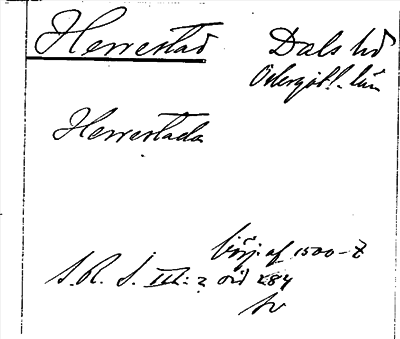 Herrestad Dals hd
Östergötl. län
Herrestada
börj. af 1500-t
S. R. S. III: 2 sid 284